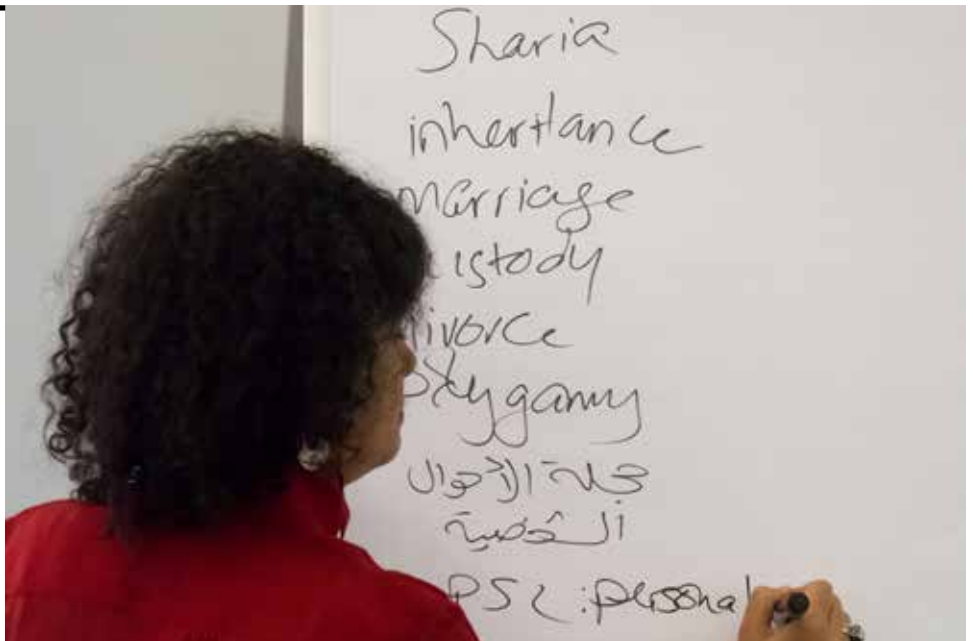 Sharia
inheritance
marriage
ustody
ivorce
olygamy
مجلة الأحوال
الشخصية
PSL : personal